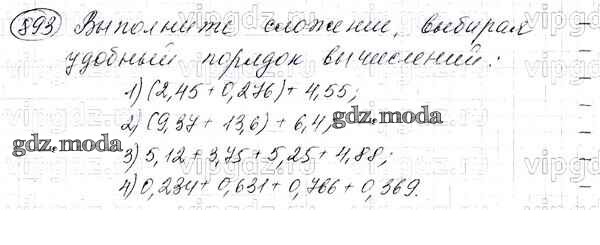 893 Выполните сложение, выбирая
удобный порядок вычислений:
1) (2,45 + 0,276) + 4,55;
2) (9,37 + 13,6) + 6,4;
gdz.moda
gdz.moda
3) 5,12 + 3,75 + 5,25 + 4,88;
4) 0,234 + 0,631 + 0,766 + 0,369.